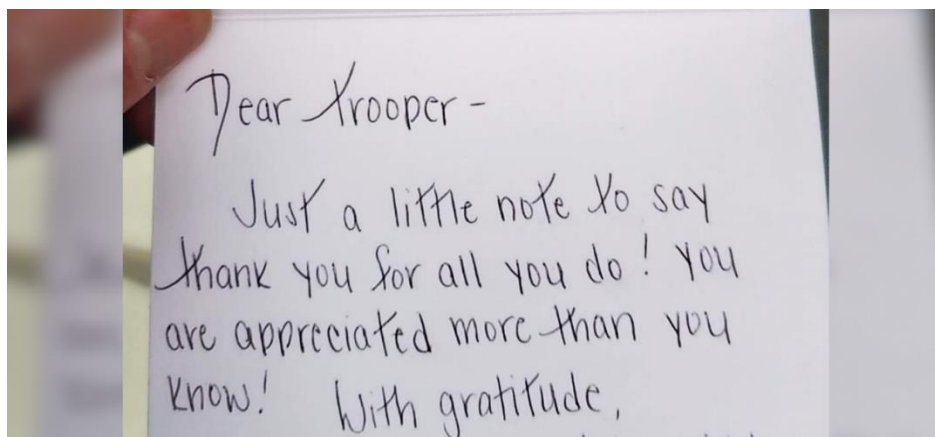 Dear trooper-
Just a little note to say
thank you for all you do! you
are appreciated more than you
know! With gratitude,